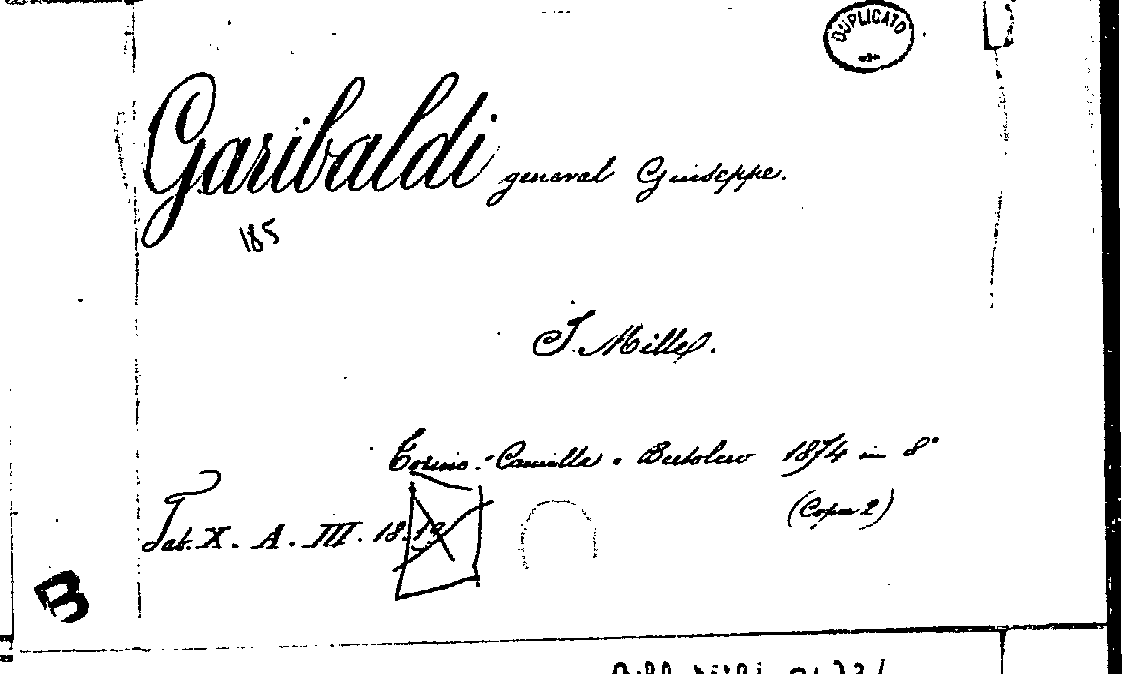 DUPLICATO
Garibaldi general Giuseppe.
185
I Mille.
Torino - Camilla e Bertolero 1874 in 8°
(Copie 2)
Tab. X. A. III. 18.19
B